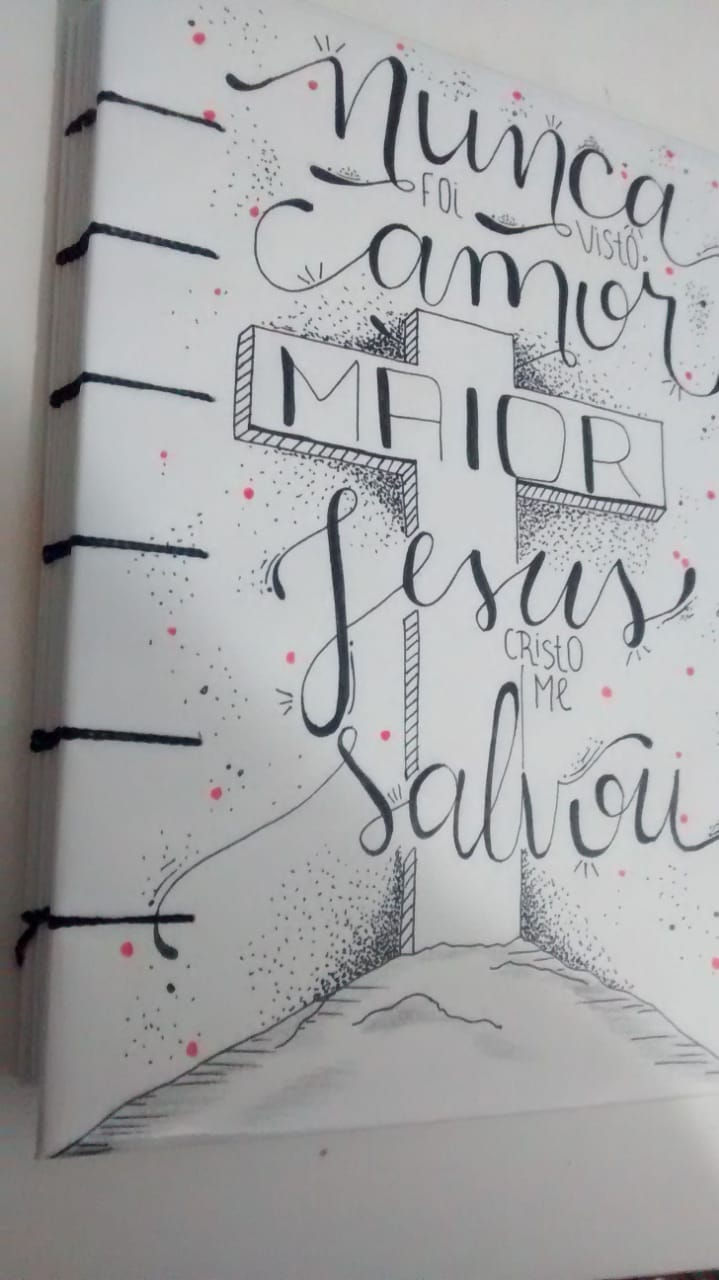 nunca
FOI VISTO
amor
MAIOR
Jesus
CRISTO
ME
salvou